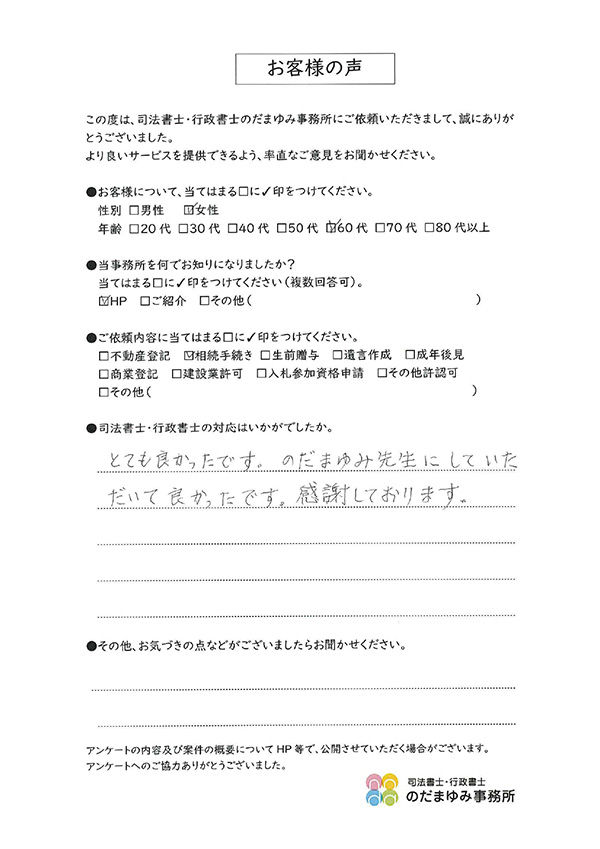 お客様の声
この度は、司法書士・行政書士のだまゆみ事務所にご依頼いただきまして、誠にありが
とうございました。
より良いサービスを提供できるよう、率直なご意見をお聞かせください。
●お客様について、当てはまる□に✓印をつけてください。
性別 □男性 ☑女性
年齢 □20代 □30代 □40代 □50代 ☑60代 □70代 □80代以上
●当事務所を何でお知りになりましたか？
当てはまる□に✓印をつけてください（複数回答可）。
☑HP □ご紹介 □その他（ ）
●ご依頼内容に当てはまる□に✓印をつけてください。
□不動産登記 ☑相続手続き □生前贈与 □遺言作成 □成年後見
□商業登記 □建設業許可 □入札参加資格申請 □その他許認可
□その他（ ）
●司法書士・行政書士の対応はいかがでしたか。
とても良かったです。のだまゆみ先生にしていた
だいて良かったです。感謝しております。
●その他、お気づきの点などがございましたらお聞かせください。
アンケートの内容及び案件の概要についてHP等で、公開させていただく場合がございます。
アンケートへのご協力ありがとうございました。
司法書士・行政書士
のだまゆみ事務所